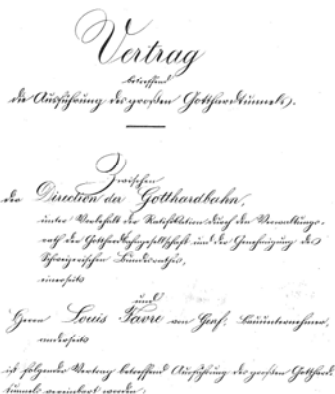 Vertrag
betreffend
die Ausführung des großen Gotthardtunnels.
Zwischen
der Direction der Gotthardbahn,
unter Vorbehalt der Ratifikation durch den Verwaltungs-
rath der Gotthardbahngesellschaft und der Genehmigung des
Schweizerischen Bundesrathes,
einerseits
und
Herrn Louis Favre von Genf, Bauunternehmer,
anderseits
ist folgender Vertrag betreffend Ausführung des großen Gotthard-
tunnels vereinbart worden: